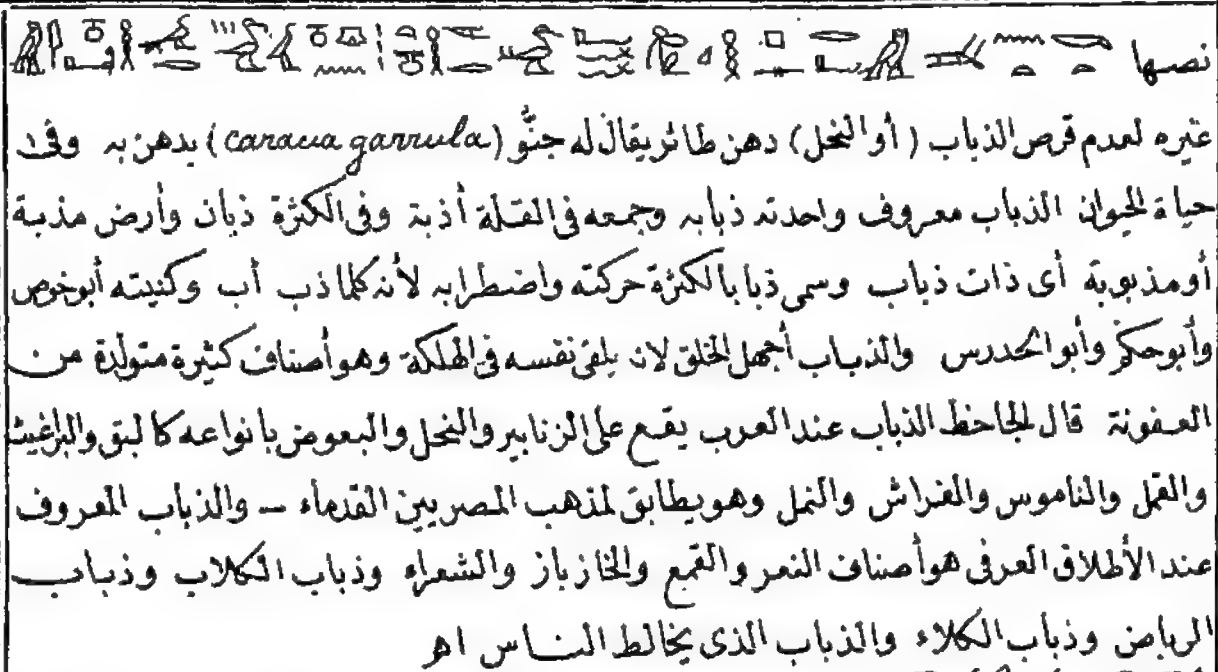 نصها
غيره لعدم قرص الذباب (أو النحل) دهن طائر يقال له جنّو (caracia garrula) يدهن به وفى
حياة الحيوان الذباب معروف واحدته ذبابه وجمعه فى القلة أذبة وفى الكثرة ذبان وأرض مذبة
أو مذبوبة أى ذات ذباب وسمى ذبابا لكثرة حركته واضطرابه لأنه كلما ذب أب وكنيته أبو خوص
وأبو حكم وأبو الحدرس والذباب أجهل الخلق لانه يلقى نفسه فى الهلكة وهو أصناف كثيرة متولدة من
العفونة قال الجاحظ الذباب عند العرب يقع على الزنابير والنحل والبعوض بانواعه كالبق والبراغيث
والقمل والناموس والفراش والنمل وهو يطابق لمذهب المصريين القدماء – والذباب المعروف
عند الأطلاق العرفى هو أصناف النعر والقمع والخازباز والشعراء وذباب الكلاب وذباب
الرياض وذباب الكلاء والذباب الذى يخالط الناس اهر